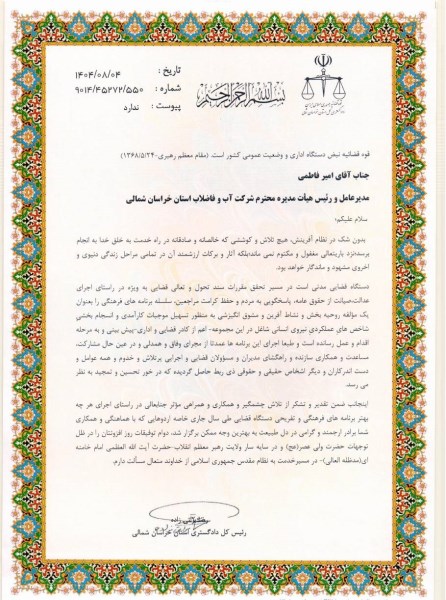 بسم الله الرحمن الرحیم
تاریخ : ۱۴۰۴/۰۸/۰۴
شماره : ۹۰۱۴/۴۵۲۷۲/۵۵۰
پیوست : ندارد
قوه قضائیه نبض دستگاه اداری و وضعیت عمومی کشور است. (مقام معظم رهبری-۱۳۶۸/۵/۲۴)
جناب آقای امیر فاطمی
مدیرعامل و رئیس هیأت مدیره محترم شرکت آب و فاضلاب استان خراسان شمالی
سلام علیکم؛
بدون شک در نظام آفرینش، هیچ تلاش و کوششی که خالصانه و صادقانه در راه خدمت به خلق خدا به انجام
برسدنزد باریتعالی مغفول و مکتوم نمی ماندبلکه آثار و برکات ارزشمند آن در تمامی مراحل زندگی دنیوی و
اخروی مشهود و ماندگار خواهد بود.
دستگاه قضایی مدتی است در مسیر تحقق مقررات سند تحول و تعالی قضایی به ویژه در راستای اجرای
عدالت،صیانت از حقوق عامه، پاسخگویی به مردم و حفظ کرامت مراجعین، سلسله برنامه های فرهنگی را بعنوان
یک مؤلفه روحیه بخش و نشاط آفرین و مشوق انگیزشی به منظور تسهیل موجبات کارآمدی و انسجام بخشی
شاخص های عملکردی نیروی انسانی شاغل در این مجموعه- اعم از کادر قضایی و اداری-پیش بینی و به مرحله
اقدام و عمل رسانده است و طبعا اجرای این برنامه ها عمدتا از مجرای وفاق و همدلی و در عین حال مشارکت،
مساعدت و همکاری سازنده و راهگشای مدیران و مسؤولان قضایی و اجرایی پرتلاش و خدوم و همه عوامل و
دست اندرکاران و دیگر اشخاص حقیقی و حقوقی ذی ربط حاصل گردیده که در خور تحسین و تمجید به نظر
می رسد.
اینجانب ضمن تقدیر و تشکر از تلاش چشمگیر و همکاری و همراهی مؤثر جنابعالی در راستای اجرای هر چه
بهتر برنامه های فرهنگی و تفریحی دستگاه قضایی طی سال جاری خاصه اردوهایی که با هماهنگی و همکاری
شما برادر ارجمند و گرامی در دل طبیعت به بهترین وجه ممکن برگزار شد، دوام توفیقات روز افزونتان را در ظل
توجهات حضرت ولی عصر(عج) و در سایه سار ولایت رهبر معظم انقلاب-حضرت آیت الله العظمی امام خامنه
ای(مدظله العالی)- در مسیرخدمت به نظام مقدس جمهوری اسلامی از خداوند متعال مسألت دارم.
رئیس کل دادگستری استان خراسان شمالی